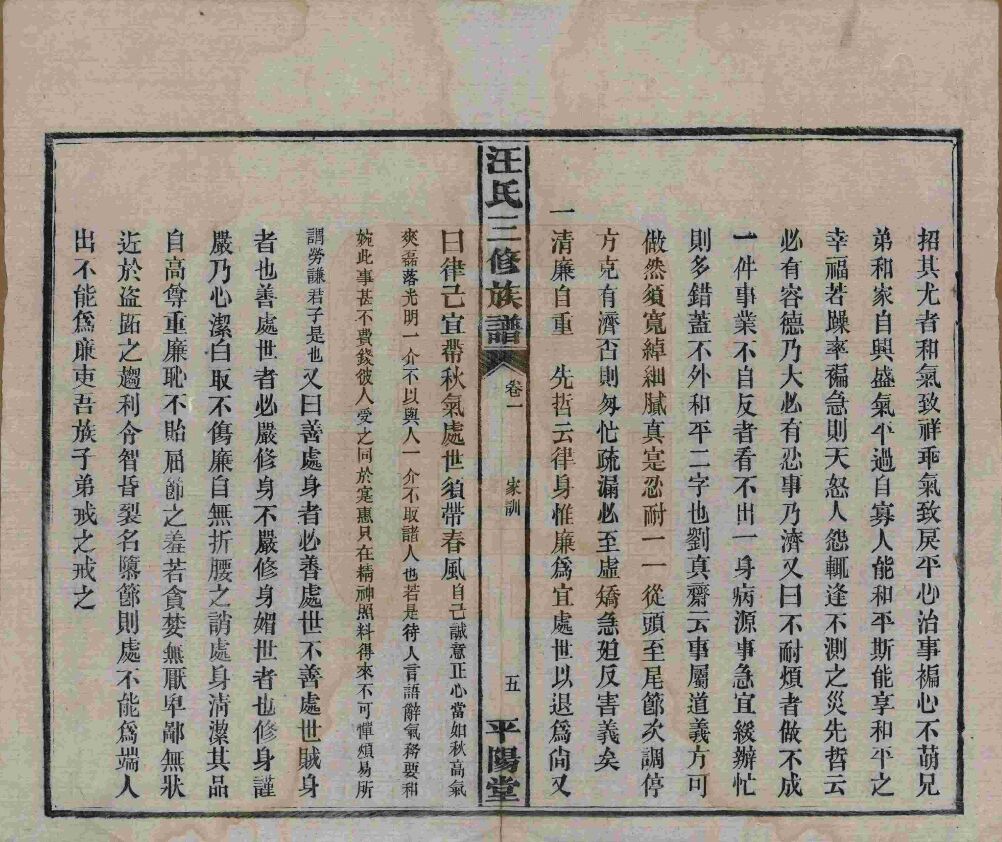 招其尤者和氣致祥乖氣致戾平心治事褊心不萌兄
弟和家自興盛氣平過自寡人能和平斯能享和平之
幸福若躁率褊急則天怒人怨輒逢不測之災先哲云
必有容德乃大必有忍事乃濟又曰不耐煩者做不成
一件事業不自反者看不出一身病源事急宜緩辦忙
則多錯蓋不外和平二字也劉真齋云事屬道義方可
做然須寬綽細膩真寔忍耐一一從頭至尾節次調停
方克有濟否則匆忙疏漏必至虛矯急廹反害義矣
一清廉自重 先哲云律身惟廉爲宜處世以退爲尙又
汪氏三修族譜 卷一 家訓 五 平陽堂
曰律己宜帶秋氣處世須帶春風自己誠意正心當如秋高氣
爽磊落光明一介不以與人一介不取諸人也若是待人言語辭氣務要和
婉此事甚不費錢彼人愛之同於寔惠只在精神照料得來不可憚煩易所
謂勞謙君子是也又曰善處身者必善處世不善處世賊身
者也善處世者必嚴修身不嚴修身媚世者也修身謹
嚴乃心潔白取不傷廉自無折腰之誚處身清潔其品
自高尊重廉恥不貽屈節之羞若貪婪無厭卑鄙無狀
近於盜跖之趨利令智昏裂名隳節則處不能爲端人
出不能爲廉吏吾族子弟戒之戒之